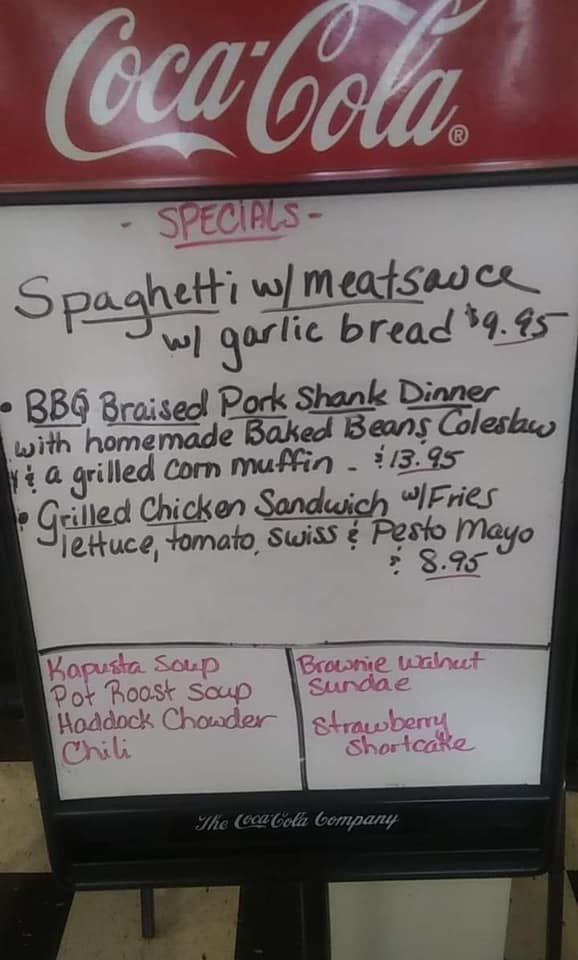 Coca-Cola®
- SPECIALS -
Spaghetti w/ meatsauce
w/ garlic bread $9.95
• BBQ Braised Pork Shank Dinner
with homemade Baked Beans Coleslaw
& a grilled corn muffin - $13.95
• Grilled Chicken Sandwich w/Fries
lettuce, tomato, swiss & Pesto Mayo
$ 8.95
Kapusta Soup
Pot Roast Soup
Haddock Chowder
Chili
Brownie Walnut
Sundae
Strawberry
Shortcake
The Coca-Cola Company